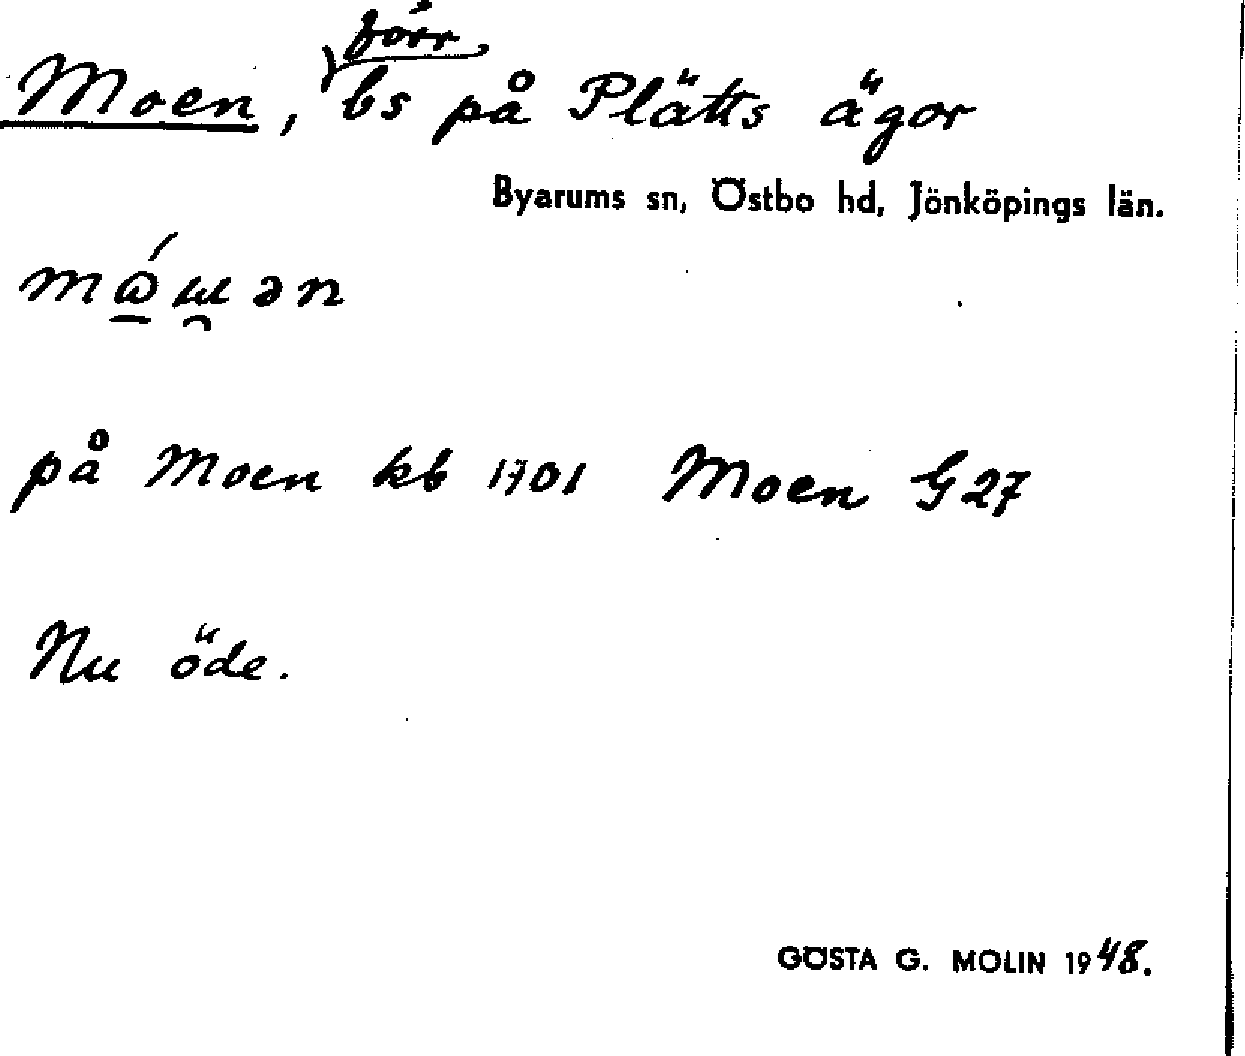 Moen, förr bs på Plätts ägor
Byarums sn, Östbo hd, Jönköpings län.
på Moen kb 1701 Moen G27
Nu öde.
GÖSTA G. MOLIN 1948.